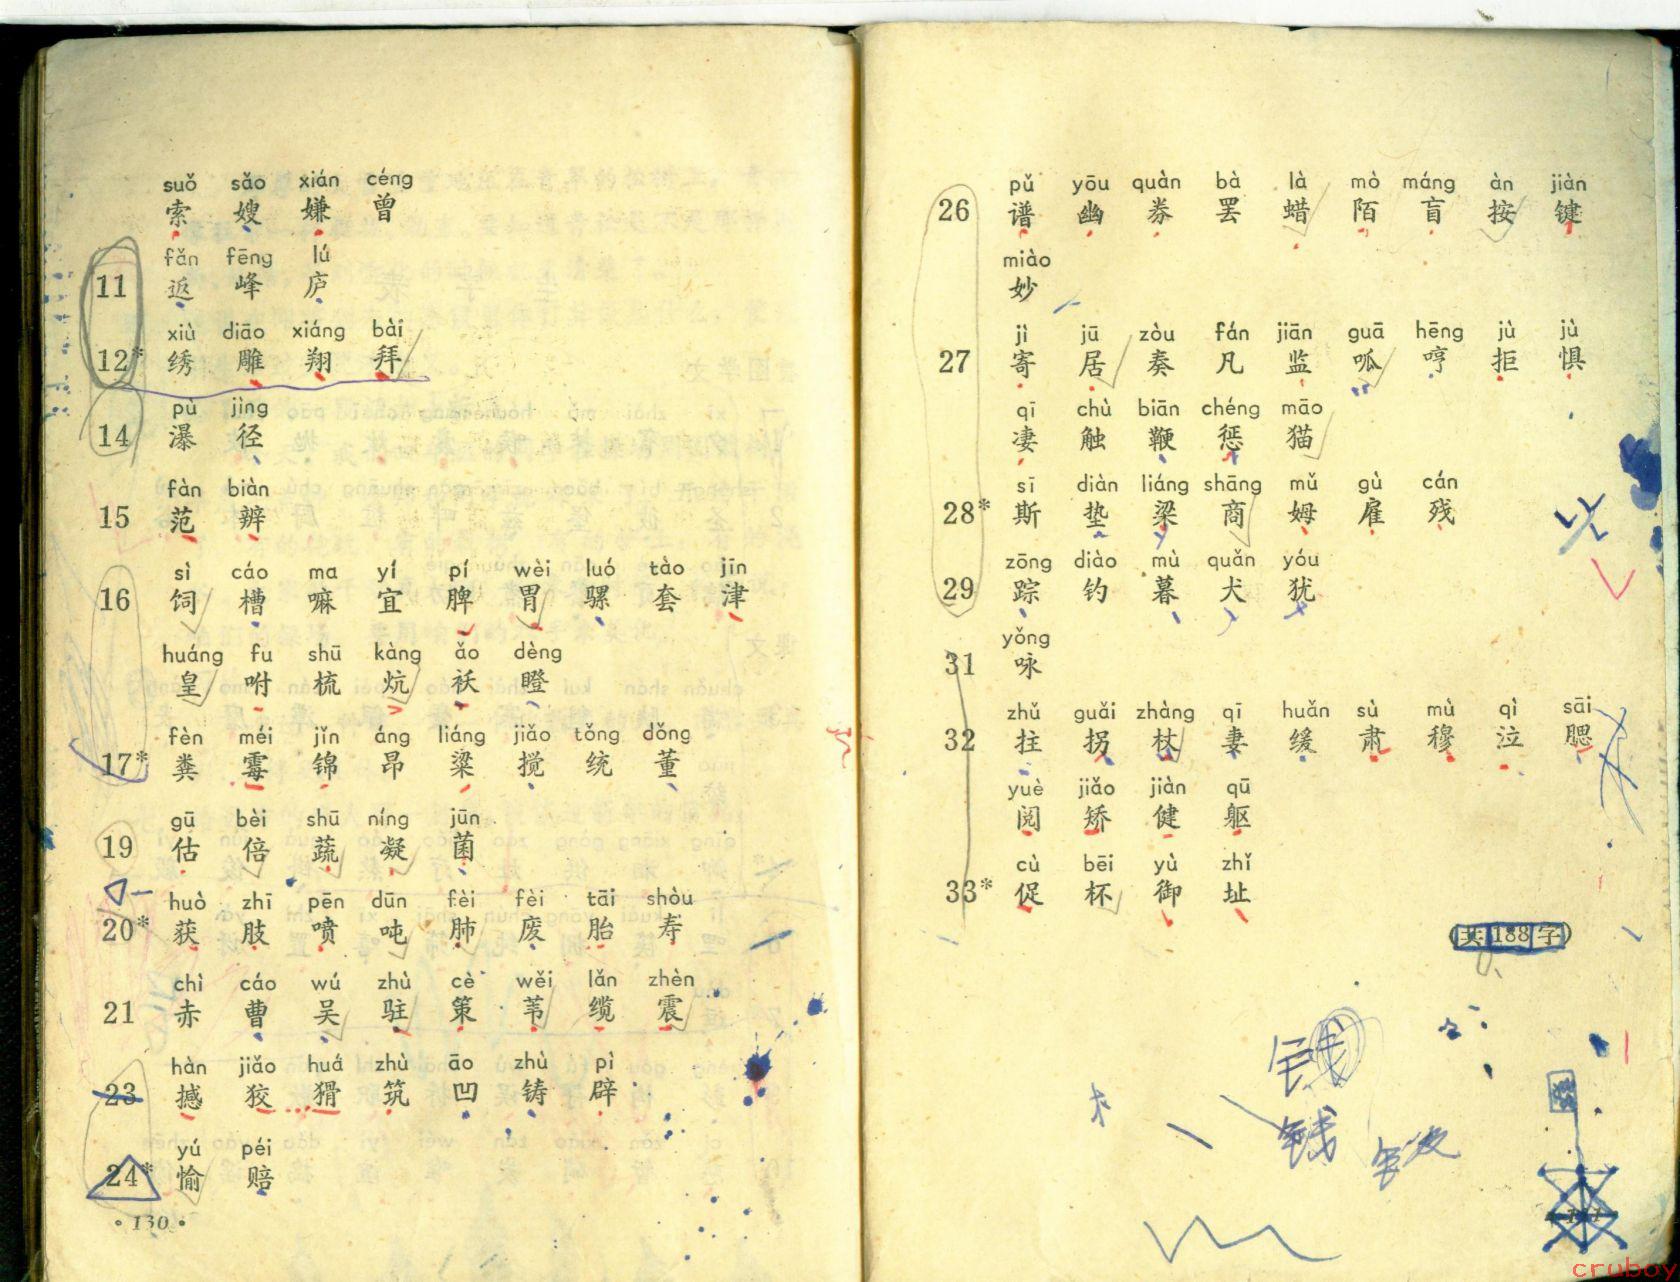 suǒ sǎo xián céng
索 嫂 嫌 曾
fǎn fēng lú
11 返 峰 庐
xiù diāo xiáng bài
12* 绣 雕 翔 拜
pù jìng
14 瀑 径
fàn biàn
15 范 辨
sì cáo ma yí pí wèi luó tào jīn
16 饲 槽 嘛 宜 脾 胃 骡 套 津
huáng fu shū kàng ǎo dèng
皇 咐 梳 炕 袄 瞪
fèn méi jǐn áng liáng jiǎo tǒng dǒng
17* 粪 霉 锦 昂 粱 搅 统 董
gū bèi shū níng jūn
19 估 倍 蔬 凝 菌
huò zhī pēn dūn fèi fèi tāi shòu
20* 获 肢 喷 吨 肺 废 胎 寿
chì cáo wú zhù cè wěi lǎn zhèn
21 赤 曹 吴 驻 策 苇 缆 震
hàn jiǎo huá zhù āo zhù pì
23 撼 狡 猾 筑 凹 铸 辟
yú péi
24* 愉 赔
·130·
pǔ yōu quàn bà là mò máng àn jiàn
26 谱 幽 券 罢 蜡 陌 盲 按 键
miào
妙
jì jū zòu fán jiān guā hēng jù jù
27 寄 居 奏 凡 监 呱 哼 拒 惧
qī chù biān chéng māo
凄 触 鞭 惩 猫
sī diàn liáng shāng mǔ gù cán
28* 斯 垫 梁 商 姆 雇 残
zōng diào mù quǎn yóu
29 踪 钓 暮 犬 犹
yǒng
31 咏
zhǔ guǎi zhàng qī huǎn sù mù qì sāi
32 拄 拐 杖 妻 缓 肃 穆 泣 腮
yuè jiǎo jiàn qū
阅 矫 健 躯
cù bēi yù zhǐ
33* 促 杯 御 址
(共188字)
钱
钱
cruboy